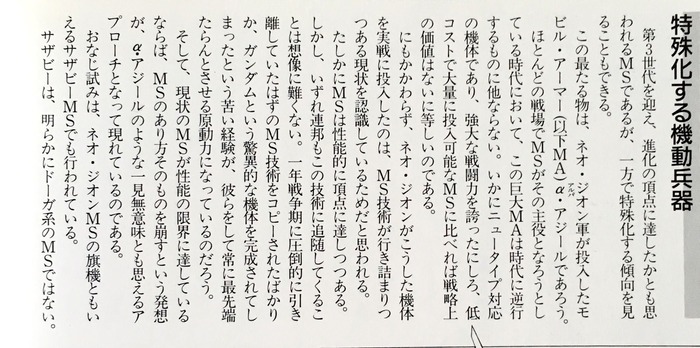 特殊化する機動兵器
第3世代を迎え、進化の頂点に達したかとも思
われるMSであるが、一方で特殊化する傾向を見
ることもできる。
この最たる物は、ネオ・ジオン軍が投入したモ
ビル・アーマー(以下MA)α・アジールであろう。
アルパ
ほとんどの戦場でMSがその主役となろうとし
ている時代において、この巨大MAは時代に逆行
するものに他ならない。いかにニュータイプ対応
の機体であり、強大な戦闘力を誇ったにしろ、低
コストで大量に投入可能なMSに比べれば戦略上
の価値はないに等しいのである。
にもかかわらず、ネオ・ジオンがこうした機体
を実戦に投入したのは、MS技術が行き詰まりつ
つある現状を認識しているためだと思われる。
たしかにMSは性能的に頂点に達しつつある。
しかし、いずれ連邦もこの技術に追随してくるこ
とは想像に難くない。一年戦争期に圧倒的に引き
離していたはずのMS技術をコピーされたばかり
か、ガンダムという驚異的な機体を完成されてし
まったという苦い経験が、彼らをして常に最先端
たらんとさせる原動力になっているのだろう。
そして、現状のMSが性能の限界に達している
ならば、MSのあり方そのものを崩すという発想
が、α・アジールのような一見無意味とも思えるア
プローチとなって現れているのである。
おなじ試みは、ネオ・ジオンMSの旗機ともい
えるサザビーMSでも行われている。
サザビーは、明らかにドーガ系のMSではない。